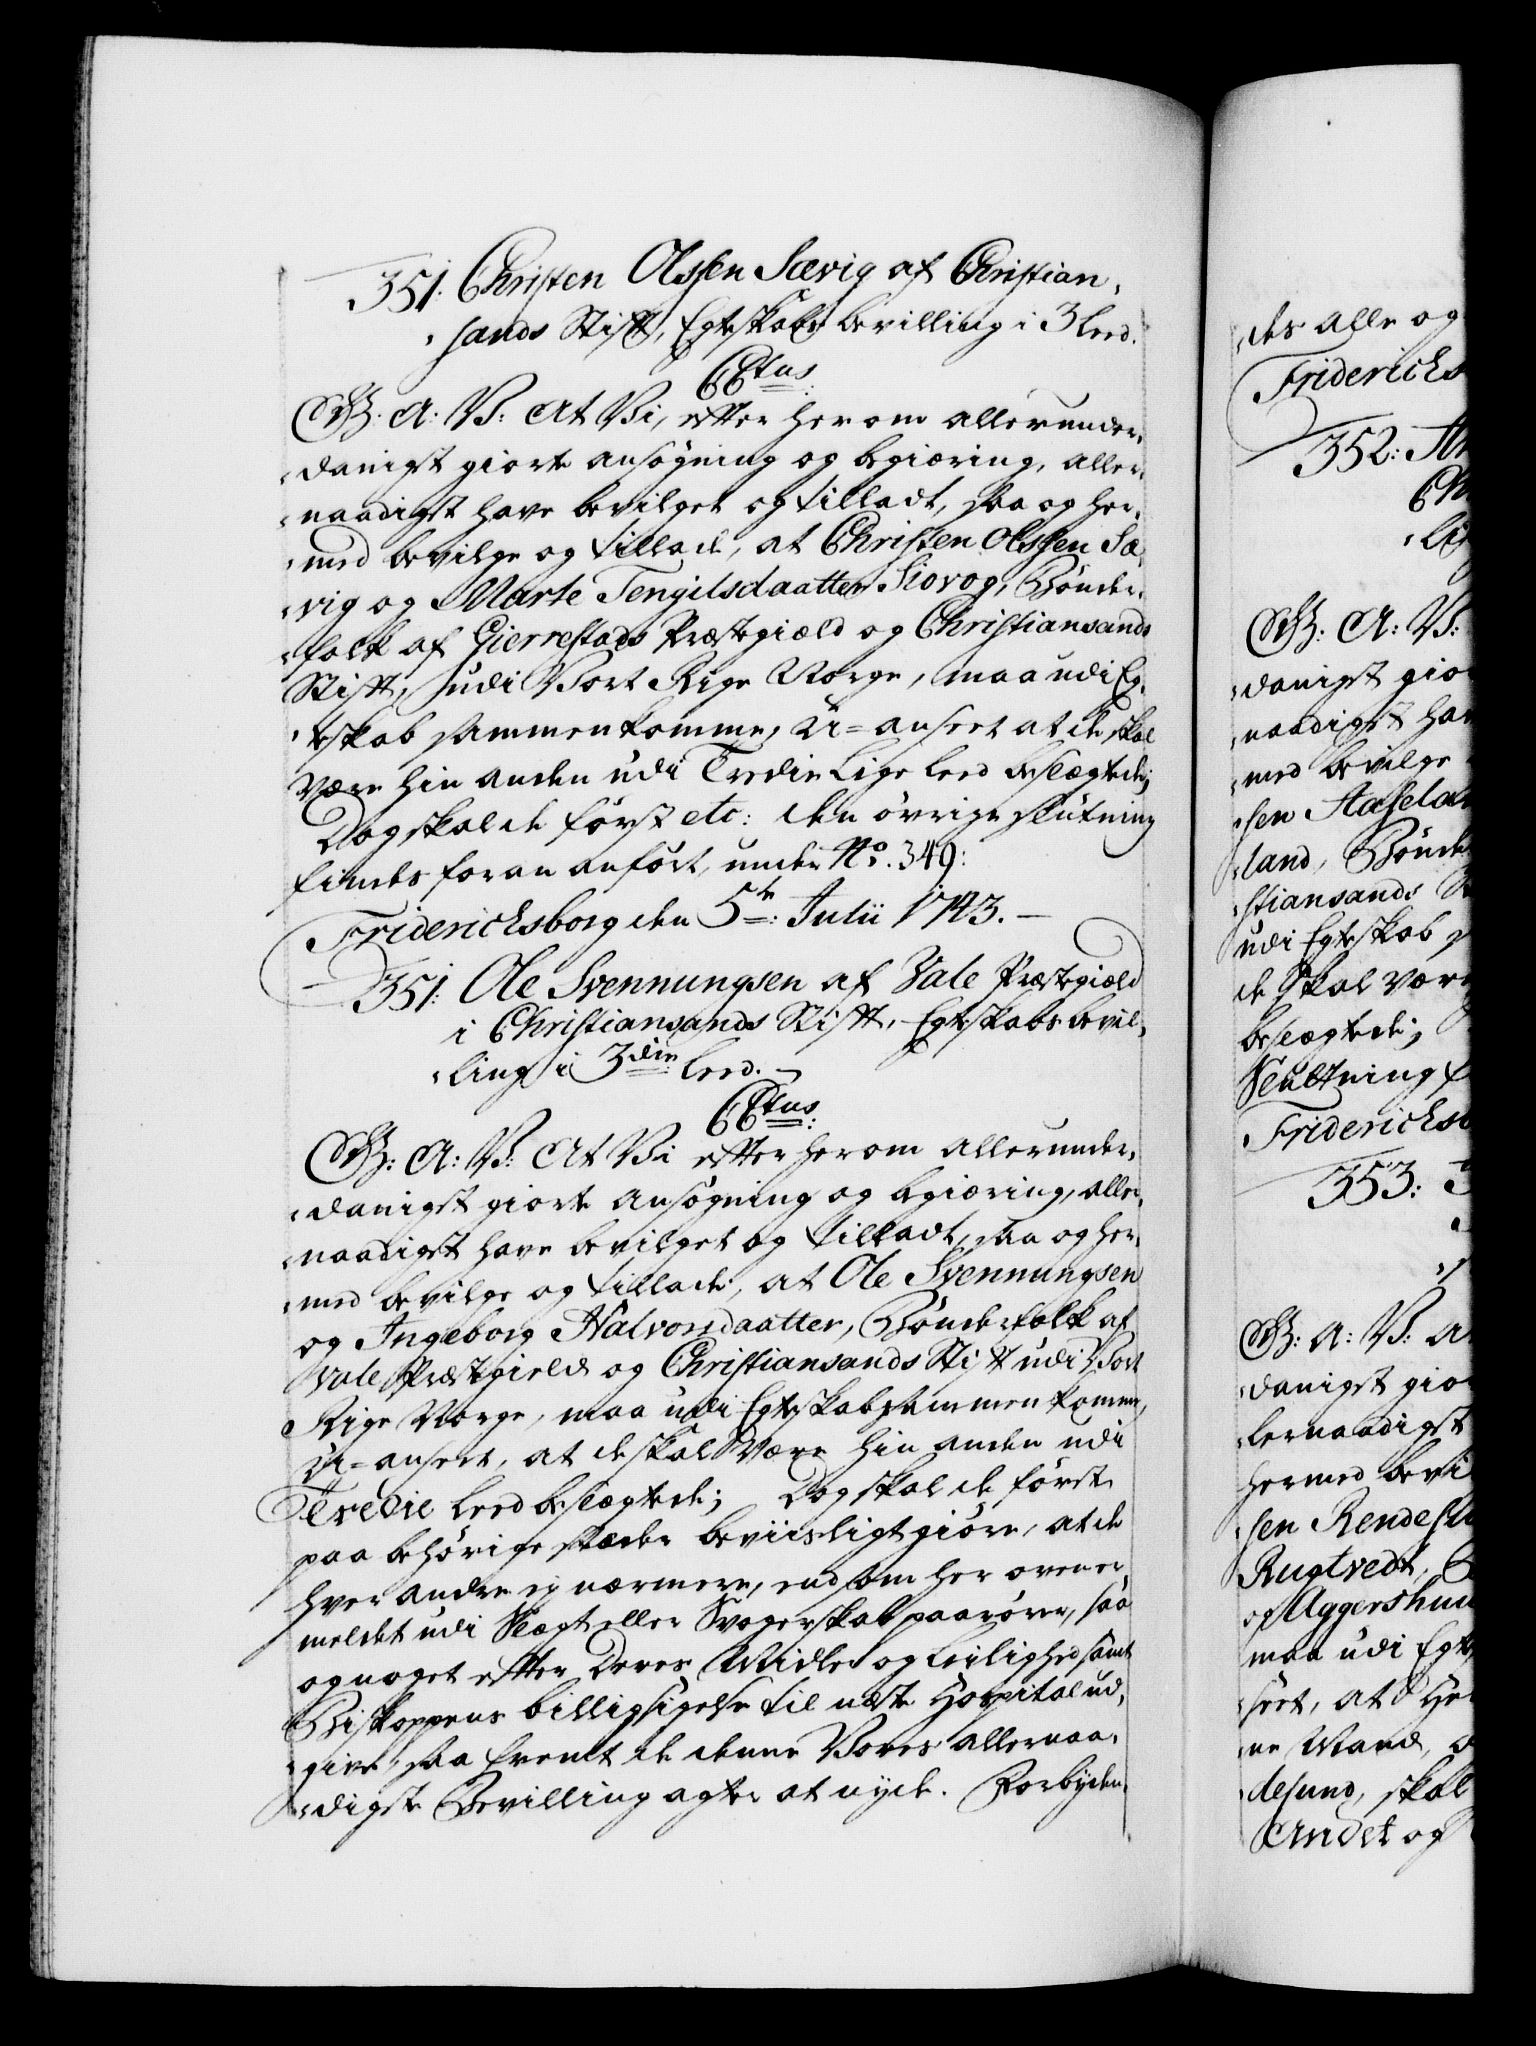 351: Christen Olssen Sævig af Christian,
,sands Stift, Egteskabs bevilling i 3 Leed.
C6tus:
G: A: V: At Vi, efter herom allerunder,
,danigst giorte ansögning og begiæring, aller,
,naadigst have bevilget og tilladt, saa og her,
,med bevilge og tillade, at Christen Olssen Sæ,
,vig og Marte Tengilsdaatter Siovog, Bönder,
,folk af Gierrestads Præstegiæld og Christiansands
Stift, udi Vort Rige Norge, maa udi Eg,
,teskab sammenkomme, U=anseet at de skal
Være hin anden udi Tredie Lige Leed beslægtede;
Dog skal de först etc: den övrige slutning
findes foran anfört, under No. 349:
Friderichsborg den 5te: Julii 1743.—
351: Ole Svennungsen af Vale Præstegiæld
i Christiansands Stift, Egteskabs bevil,
,ling i 3die Leed.—
C6tus:
G: A: V: At Vi efter herom allerunder,
,danigst giorte ansögning og begiæring, aller,
,naadigst have bevilget og tilladt, saa og her,
,med bevilge og tillade, at Ole Svennungsen
og Ingeborg Halvorsdaatter, Bönderfolk af
Vale Præstegield og Christiansands Stift udi Vort
Rige Norge, maa udi Egteskab sammenkomme,
U=anseet, at de skal Være hin anden udi
Tredie Leed beslægtede; Dog skal de förste
paa behörige stæder beviisligt giöre, at de
hver andre ej nærmere, end som her oven er
meldet udi Slægt eller Svogerskab paarörer, saa
og noget efter Deres Midler og Leilighed samt
Biskoppens billigsigelse til næste Hospital ud,
,give, saa fremt de denne Vores allernaa,
,digste Bevilling agter at nyde. Forbyden,
,des alle og
Friderichs
352: 
,lig
G: A: V:
,danigst gior
,naadigst hav
,med bevilge
,sen Haselan
,land, Bönde
,stiansands St
udi Egteskab s
de skal Være
beslægtede;
Slutning f
Fridericsb
353:
G: A: V: A
,danigst gior
,lernaadigst
hermed bevi
,sen Rendesu
Rugtvedt, B
og Aggershuu
maa udi Egte
,seet, at He
ne Mand, o
desund, skal
Andet og